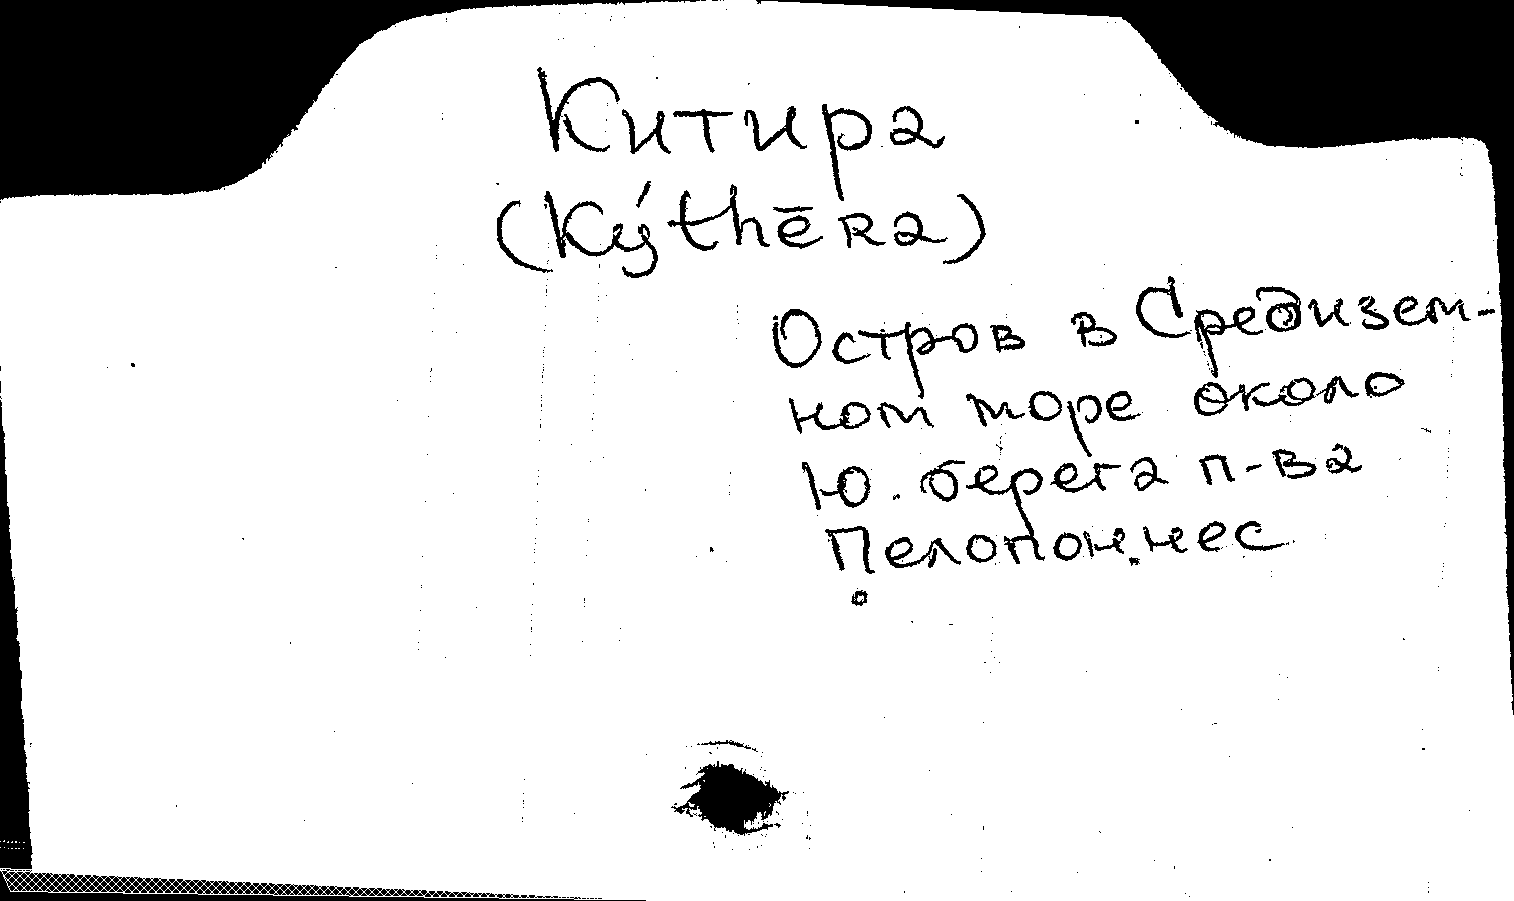 Китира
(Kýthēra)
Остров в Средизем-
ном море около
Ю. берега п-ва
Пелопоннес